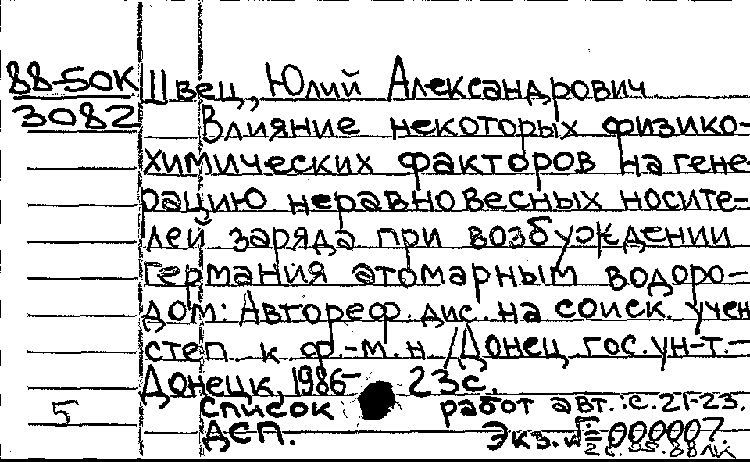 88-50К Швец, Юлий Александрович
3082 Влияние некоторых физико-
химических факторов на гене-
рацию неравновесных носите-
лей заряда при возбуждении
германия атомарным водоро-
дом: Автореф. дис. на соиск. учен
степ к ф.-м.н /Донец гос. ун-т.-
Донецк, 1986- 23с.
5 список работ авт.: с. 21-23.
ДСП. Экз. № 000007.